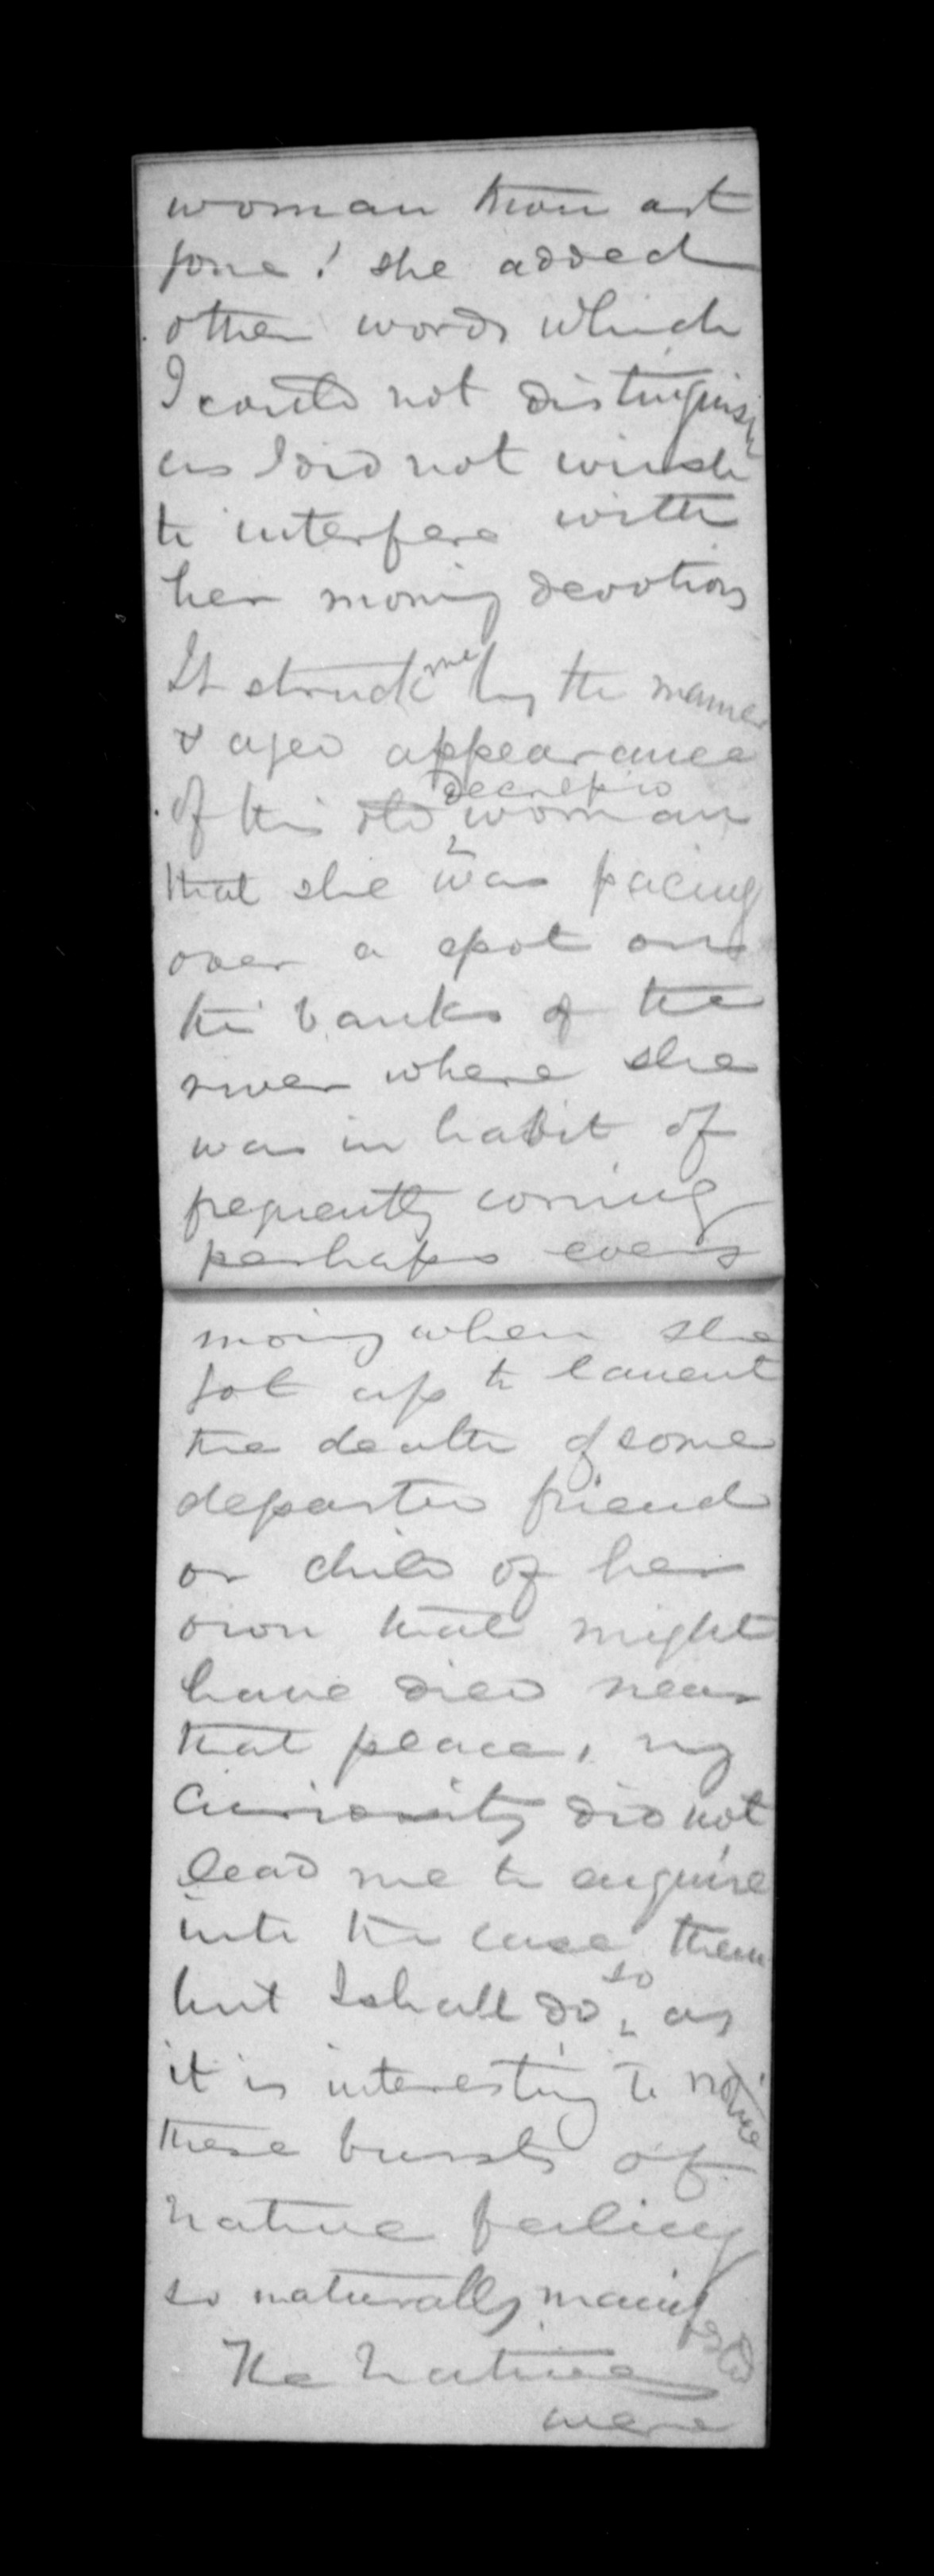 woman thou art
gone! she added
other words which
I could not distinguish
as I did not wish
to interfere with
her morning devotions
It struck me by the manner
& aged appearance
of this old decrepid woman
that she was pacing
over a spot on
the banks of the
river where she
was in habit of
frequently coming
perhaps every
morng when she
got up to lament
the death of some
departed friend
or child of her
own that might
have died near
that place, my
curiosity did not
lead me to enquire
into the case then
but I shall do so, as
it is interesting to notice
these bursts of
native feeling
so naturally manifested
The Natives
were